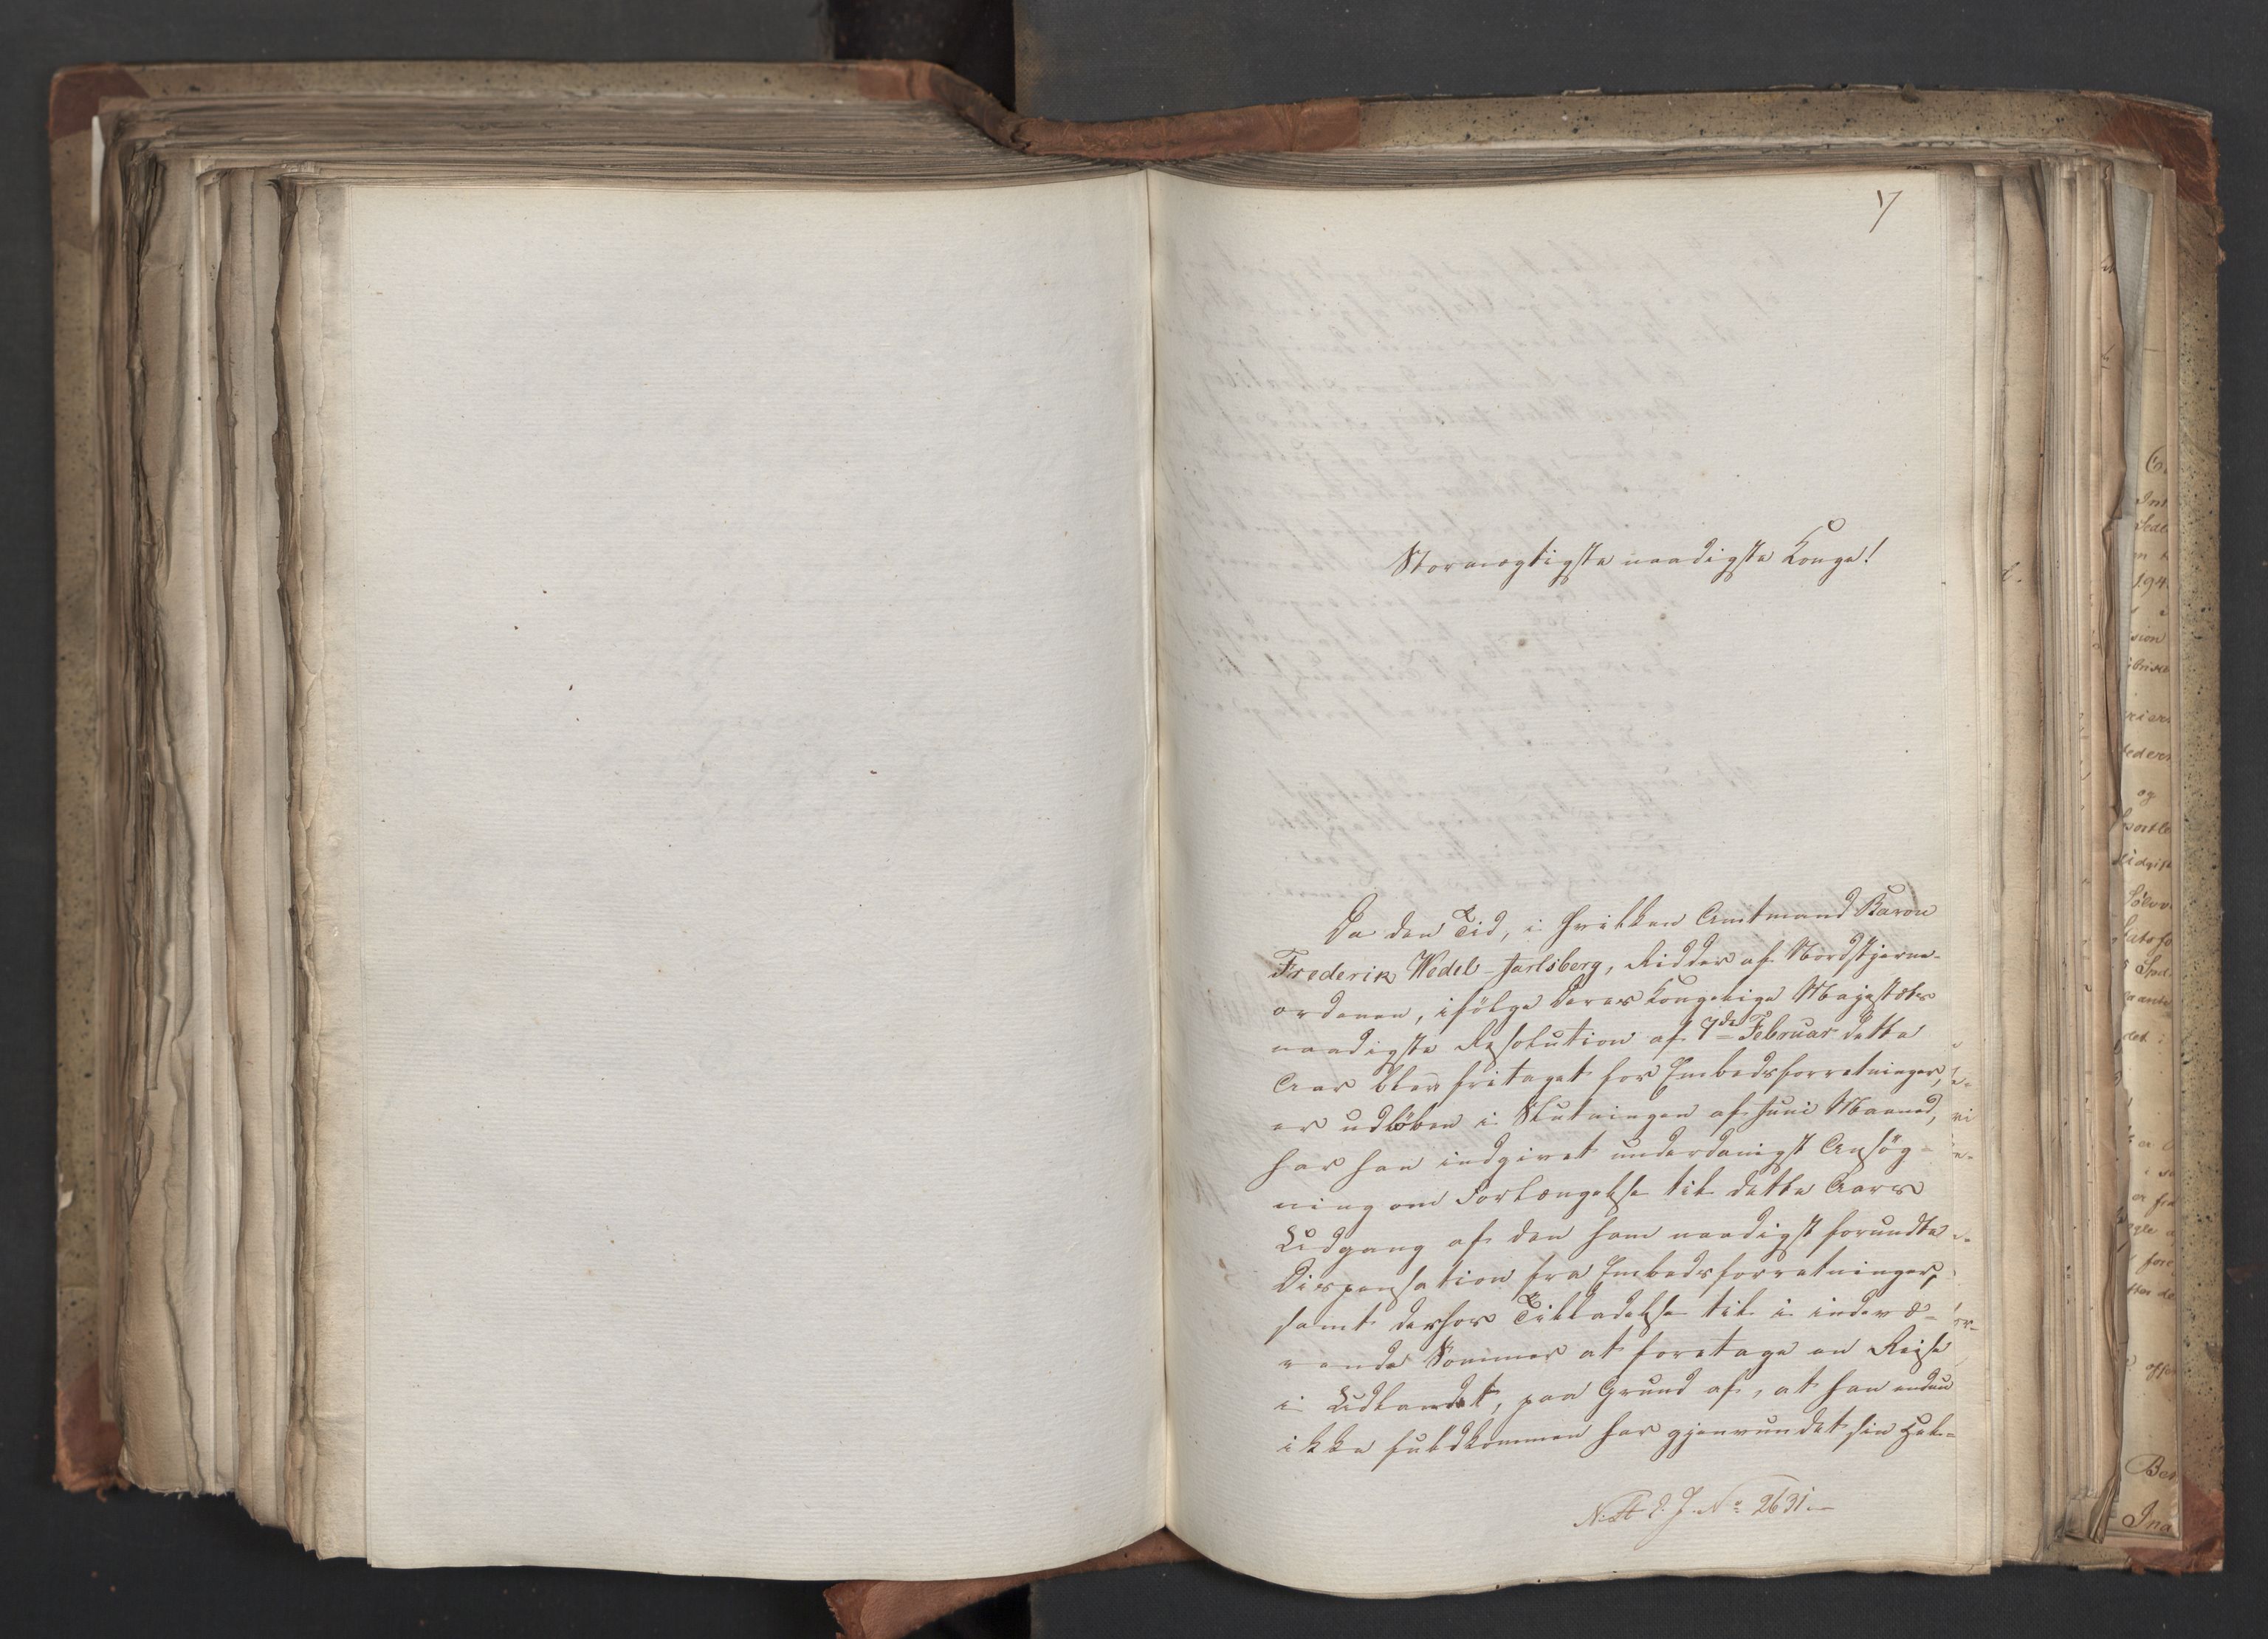 7
Stormægtigste naadigste Konge!
Da den Tid, i hvilken Amtmand Baron
Frederik Wedel-Jarlsberg, Ridder af Nordstjerne-
ordenen, ifölge Deres Kongelige Majestæts
naadigste Resolution af 7de Februar dette
Aar blev fritaget for Embedsforretninger,
er udlöben i Slutningen af Juni Maaned,
har han indgivet underdanigst Ansög-
ning om Forlængelse til dette Aars
Udgang af den ham naadigst forundte
Dispensation fra Embedsforretninger,
samt derhos Tilladelse til i indevæ-
rende Sommer at foretage en Reise
i Udlandet, paa Grund af, at han endnu
ikke fuldkommen har gjenvundet sin Hel-
No 2631.